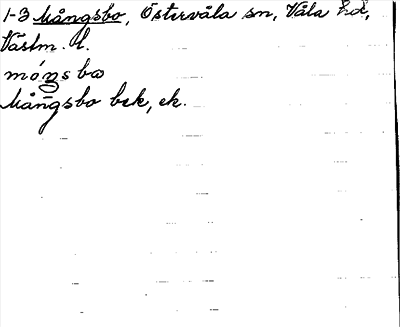 1-3 Mångsbo, Östervåla sn, Våla hd,
Västm. l.
móŋsbo
Mångsbo bek, ek.